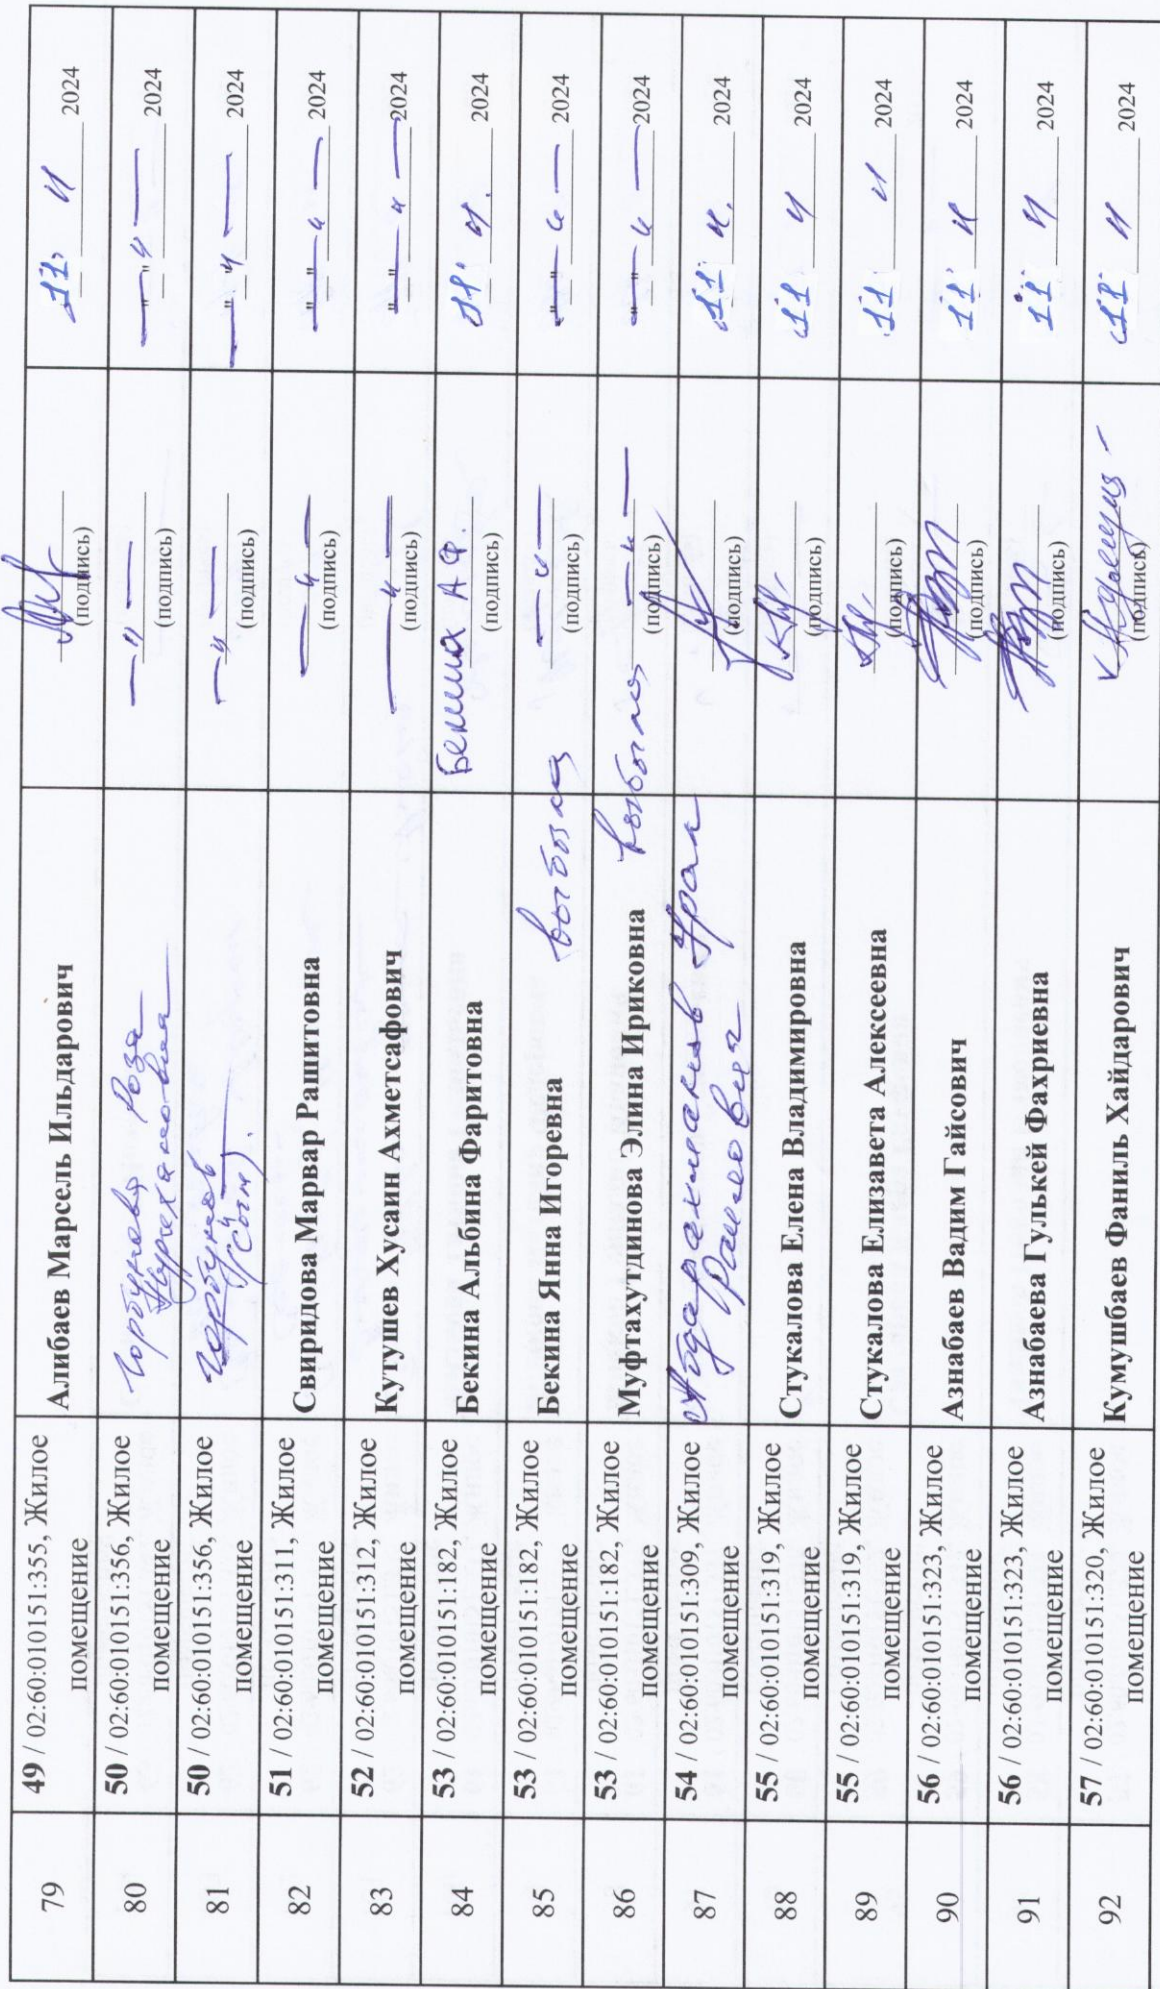 79
49 / 02:60:010151:355, Жилое
помещение
Алибаев Марсель Ильдарович
(подпись)
11. 2024
80
50 / 02:60:010151:356, Жилое
помещение
Горбунова Роза
(подпись)
— " — 2024
81
50 / 02:60:010151:356, Жилое
помещение
Горбунов
(подпись)
— " — 2024
82
51 / 02:60:010151:311, Жилое
помещение
Свиридова Марвар Рашитовна
(подпись)
— " — 2024
83
52 / 02:60:010151:312, Жилое
помещение
Кутушев Хусаин Ахметсафович
(подпись)
— " — 2024
84
53 / 02:60:010151:182, Жилое
помещение
Бекина Альбина Фаритовна
Бекина А.Ф.
(подпись)
11. 2024
85
53 / 02:60:010151:182, Жилое
помещение
Бекина Янна Игоревна
выбыла
(подпись)
— " — 2024
86
53 / 02:60:010151:182, Жилое
помещение
Муфтахутдинова Элина Ириковна
выбыла
(подпись)
— " — 2024
87
54 / 02:60:010151:309, Жилое
помещение
Абдрахманов Урал
(подпись)
11 2024
88
55 / 02:60:010151:319, Жилое
помещение
Стукалова Елена Владимировна
(подпись)
11 2024
89
55 / 02:60:010151:319, Жилое
помещение
Стукалова Елизавета Алексеевна
(подпись)
11 2024
90
56 / 02:60:010151:323, Жилое
помещение
Азнабаев Вадим Гайсович
(подпись)
11 2024
91
56 / 02:60:010151:323, Жилое
помещение
Азнабаева Гулькей Фахриевна
(подпись)
11 2024
92
57 / 02:60:010151:320, Жилое
помещение
Кумушбаев Фаниль Хайдарович
(подпись)
11 2024